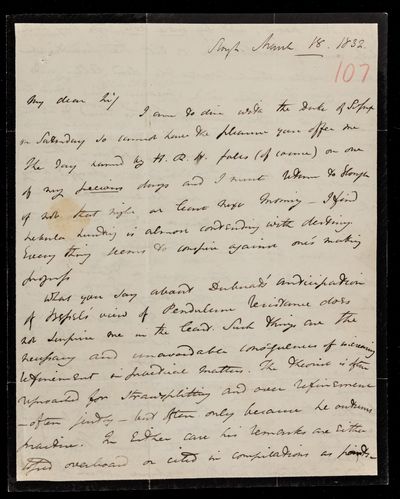 Slough. March 18. 1832.
107
My dear Sir
I am to dine with the Duke of
on Saturday so cannot have the pleasure you offer me
The day named by H. R. H. falls (of course) on one
of my precious days and I must return to Slough
if not that night at least next morning — I find
nebula hunting is almost contending with destiny.
Every thing seems to conspire against one's making
progress
What you say about Dubuat's anticipation
of Bessel's view of Pendulum resistance does
not surprise me in the least. Such things are the
necessary and unavoidable consequences of increasing
refinement in practical matters. The theorist is often
reproached for strawsplitting and over refinement
— often justly — but often only because he outruns
practice. In Either case his remarks are Either
overboard or cited in compilations as